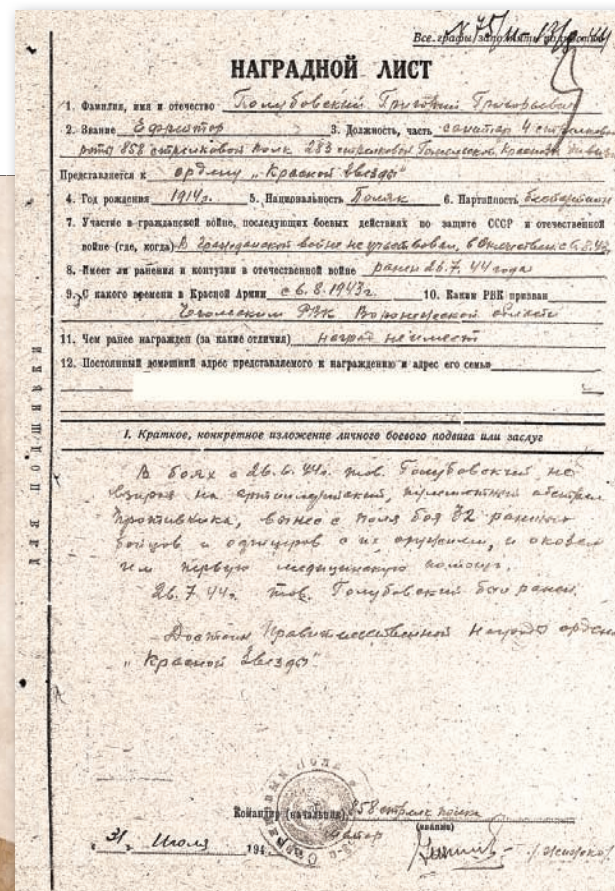 Все графы заполнять полностью
№ 75/н - 13/9 44
НАГРАДНОЙ ЛИСТ
1. Фамилия, имя и отчество Голубовский Григорий Григорьевич
2. Звание Ефрейтор 3. Должность, часть санитар 4 стрелковой
роты 858 стрелковой полк 283 стрелковой Гомельской Красноз. дивизии
Представляется к ордену „Красной Звезды"
4. Год рождения 1914г. 5. Национальность Поляк 6. Партийность беспартийн
7. Участие в гражданской войне, последующих боевых действиях по защите СССР и отечественной
войне (где, когда) В гражданской войне не участвовал, в Отечествен. с 6.8.43
8. Имеет ли ранения и контузии в отечественной войне ранен 26.7.44 года
9. С какого времени в Красной Армии с 6.8.1943г. 10. Каким РВК призван
РВК Воронежской области
11. Чем ранее награжден (за какие отличия) наград не имеет
12. Постоянный домашний адрес представляемого к награждению и адрес его семьи
I. Краткое, конкретное изложение личного боевого подвига или заслуг
В боях с 26.6.44г. тов. Голубовский не
взирая на артиллерийский, пулеметный обстрел
противника, вынес с поля боя 32 раненых
бойцов и офицеров с их оружием, и оказал
им первую медицинскую помощь.
26.7.44г. тов. Голубовский был ранен.
Достоин Правительственной Награды ордена
„Красной Звезды"
Командир (начальник) 858 стрелк полка
(звание)
майор
„31" Июля 194
ДЛЯ ПОДШИВКИ